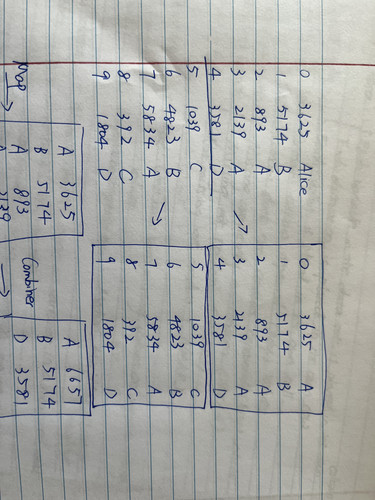 0 3625 Alice
1 5174 B
2 893 A
3 2139 A
4 3581 D
5 1039 C
6 4823 B
7 5834 A
8 392 C
9 1804 D
→
→
0 3625 A
1 5174 B
2 893 A
3 2139 A
4 3581 D
5 1039 C
6 4823 B
7 5834 A
8 392 C
9 1804 D
Map →
A 3625
B 5174
A 893
Combiner →
A 6657
B 5174
D 3581